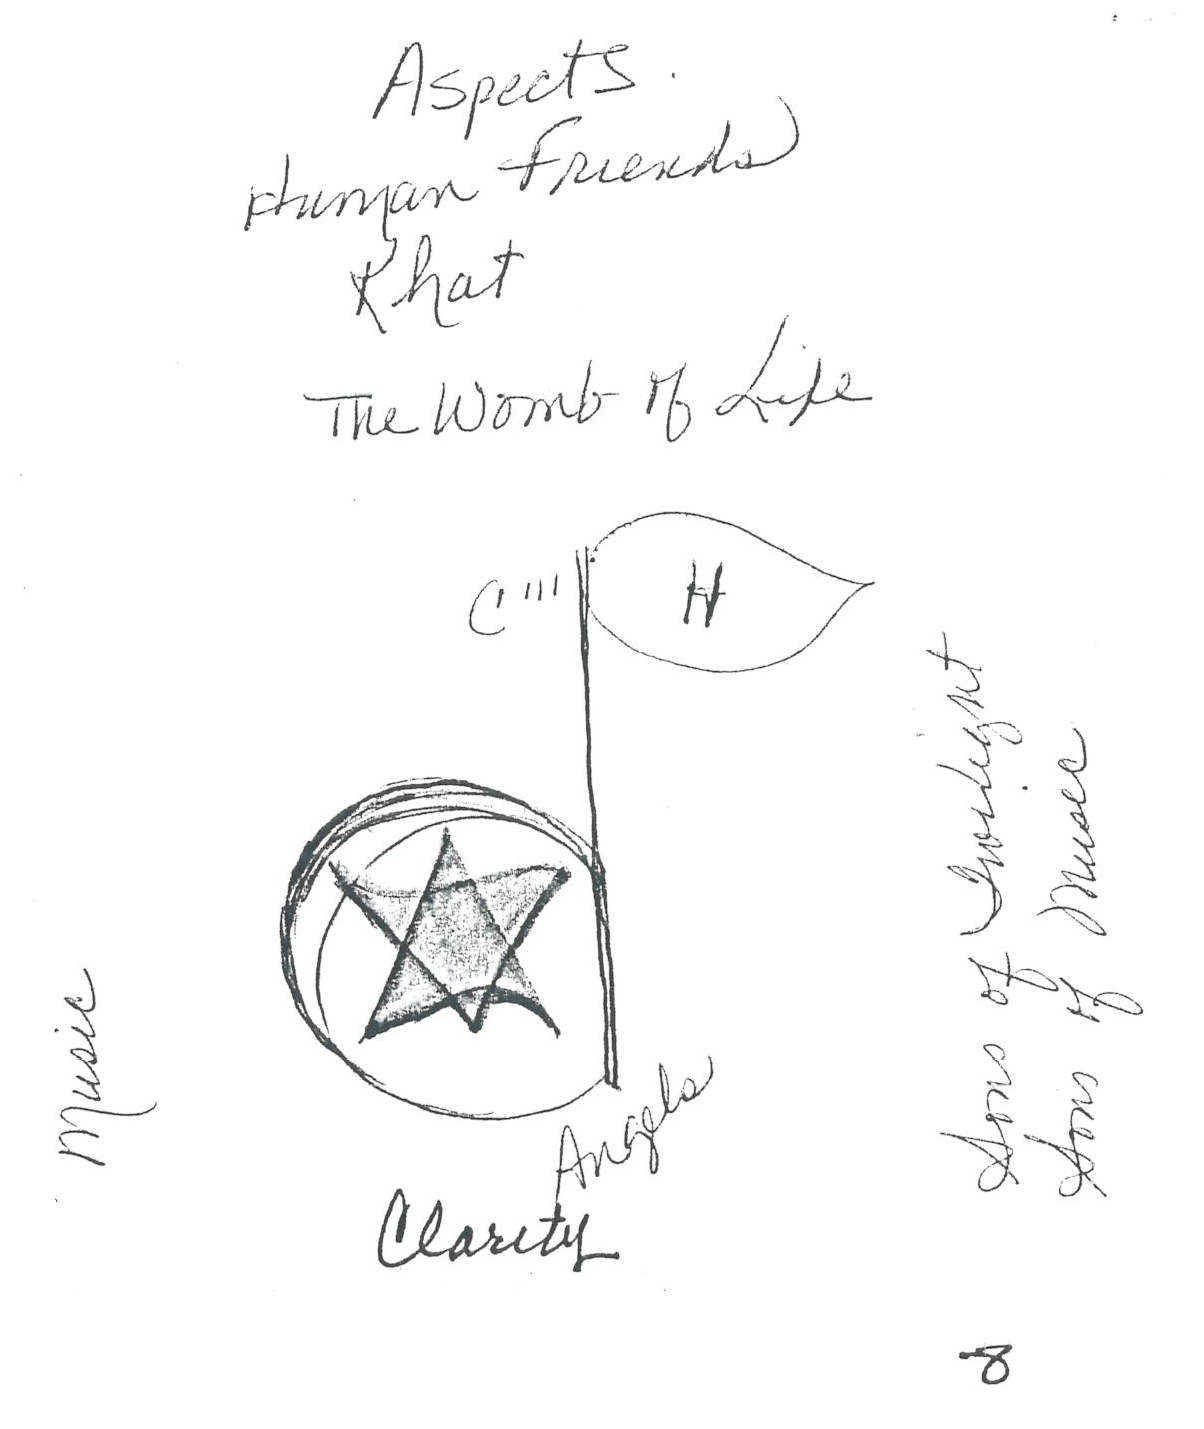 Aspects.
Human Friends
Khat
The Womb of Life
C'''
H
Sons of Twilight
Sons of Music
Music
Angels
Clarity
8